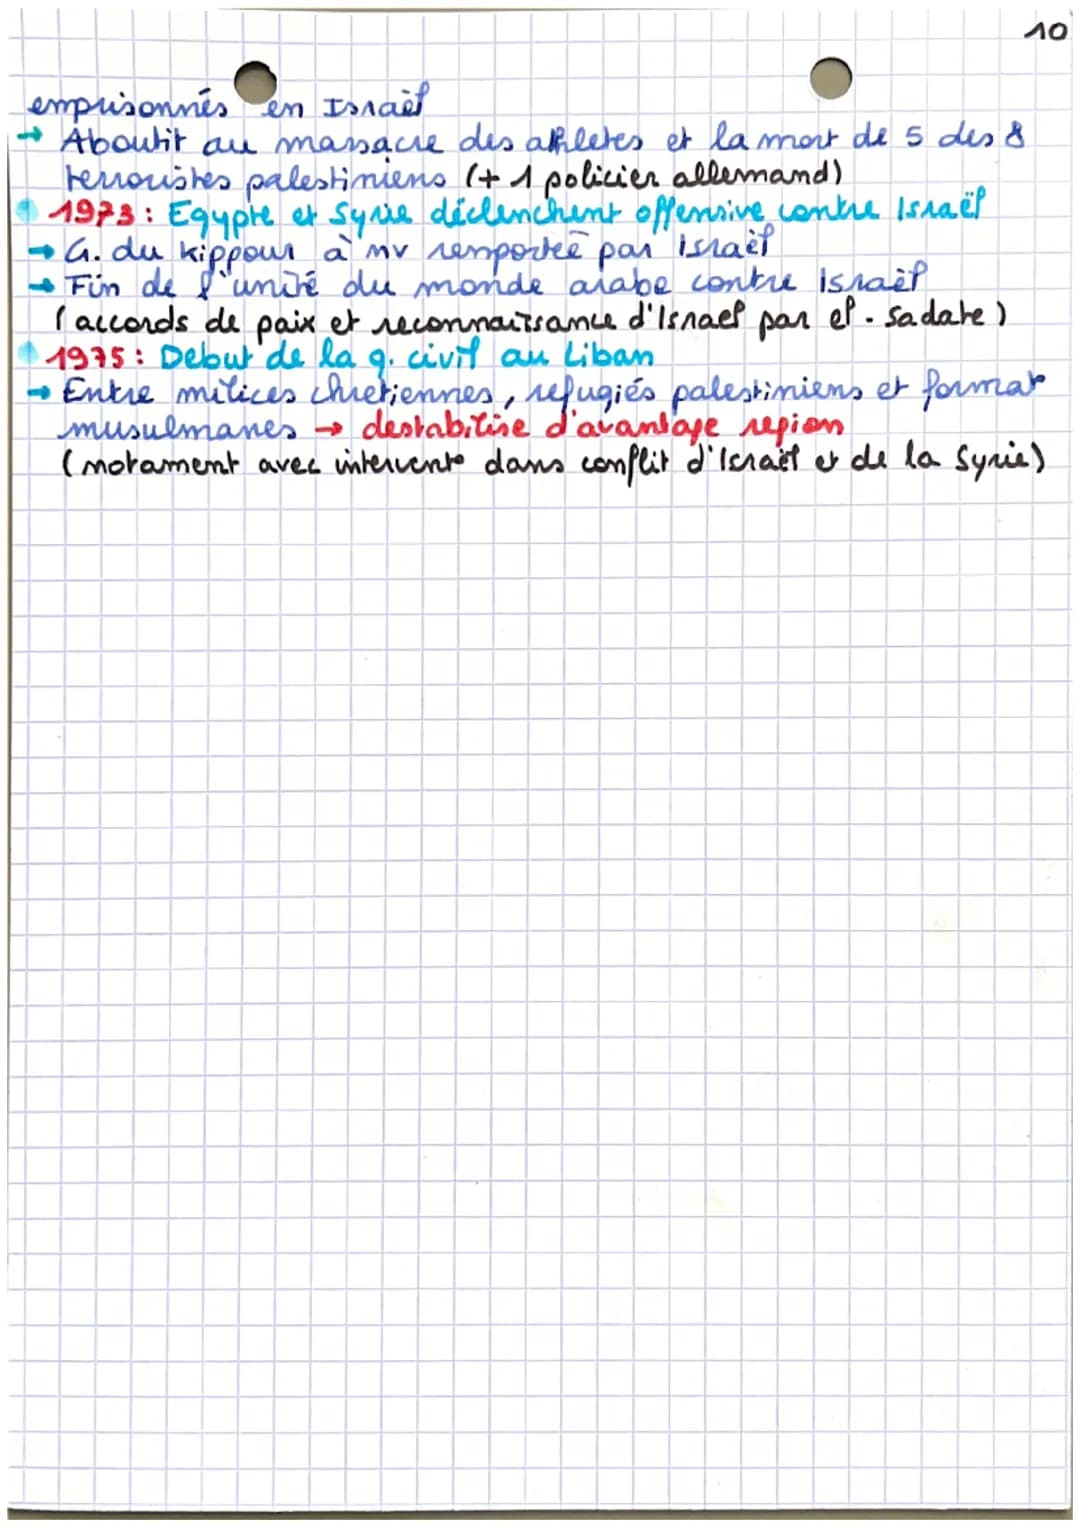 10
emprisonnés en Israël
→ Aboutit au massacre des athletes et la mort de 5 des 8
terroristes palestiniens (+ 1 policier allemand)
1973 : Egypte et Syrie déclenchent offensive contre Israël
→ G. du Kippour à nv remportée par israël
→ Fin de l'unité du monde arabe contre israël
(accords de paix et reconnaissance d'Israel par el-sadate)
1975 : Debut de la g. civil au Liban
→ Entre milices chretiennes, refugiés palestiniens et format°
musulmanes → destabilise d'avantage region
(notament avec intervent° dans conflit d'Israël et de la Syrie)